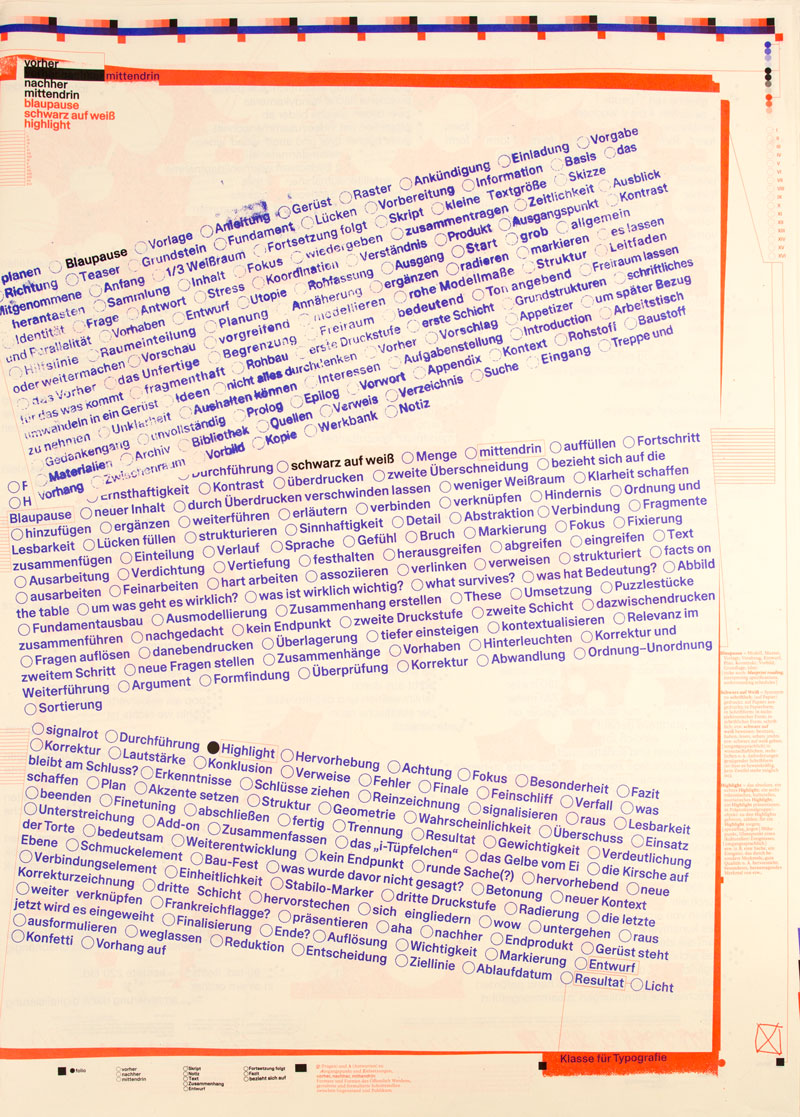 vorher
mittendrin
nachher
mittendrin
blaupause
schwarz auf weiß
highlight
planen ○ Blaupause ○ Vorlage ○ Anleitung ○ Gerüst ○ Raster ○ Ankündigung ○ Einladung ○ Vorgabe
Richtung ○ Teaser ○ Grundstein ○ Fundament ○ Lücken ○ Vorbereitung ○ Information ○ Basis ○ das
Mitgenommene ○ Anfang ○ 1/3 Weißraum ○ Fortsetzung folgt ○ Skript ○ kleine Textgröße ○ Skizze
herantasten ○ Sammlung ○ Inhalt ○ Fokus ○ wiedergeben ○ zusammentragen ○ Zeitlichkeit ○ Ausblick
○ Identität ○ Frage ○ Antwort ○ Stress ○ Koordination ○ Verständnis ○ Produkt ○ Ausgangspunkt ○ Kontrast
und Parallelität ○ Vorhaben ○ Entwurf ○ Utopie ○ Rohfassung ○ Ausgang ○ Start ○ grob ○ allgemein
○ Hilfslinie ○ Raumeinteilung ○ Planung ○ Annäherung ○ ergänzen ○ radieren ○ markieren ○ es lassen
oder weitermachen ○ Vorschau ○ vorgreifend ○ modellieren ○ rohe Modellmaße ○ Struktur ○ Leitfaden
○ das Vorher ○ das Unfertige ○ Begrenzung ○ Freiraum ○ bedeutend ○ Ton angebend ○ Freiraum lassen
für das was kommt ○ fragmenthaft ○ Rohbau ○ erste Druckstufe ○ erste Schicht ○ Grundstrukturen ○ schriftliches
umwandeln in ein Gerüst ○ Ideen ○ nicht alles durchdenken ○ Vorher ○ Vorschlag ○ Appetizer ○ um später Bezug
zu nehmen ○ Unklarheit ○ Aushalten können ○ Interessen ○ Aufgabenstellung ○ Introduction ○ Arbeitstisch
○ Gedankengang ○ unvollständig ○ Prolog ○ Epilog ○ Vorwort ○ Appendix ○ Kontext ○ Rohstoff ○ Baustoff
○ Materialien ○ Archiv ○ Bibliothek ○ Quellen ○ Verweis ○ Verzeichnis ○ Suche ○ Eingang ○ Treppe und
Vorhang ○ Zwischenraum ○ Vorbild ○ Kopie ○ Werkbank ○ Notiz
Durchführung ○ schwarz auf weiß ○ Menge ○ mittendrin ○ auffüllen ○ Fortschritt
○ Ernsthaftigkeit ○ Kontrast ○ überdrucken ○ zweite Überschneidung ○ bezieht sich auf die
Blaupause ○ neuer Inhalt ○ durch Überdrucken verschwinden lassen ○ weniger Weißraum ○ Klarheit schaffen
○ hinzufügen ○ ergänzen ○ weiterführen ○ erläutern ○ verbinden ○ verknüpfen ○ Hindernis ○ Ordnung und
Lesbarkeit ○ Lücken füllen ○ strukturieren ○ Sinnhaftigkeit ○ Detail ○ Abstraktion ○ Verbindung ○ Fragmente
zusammenfügen ○ Einteilung ○ Verlauf ○ Sprache ○ Gefühl ○ Bruch ○ Markierung ○ Fokus ○ Fixierung
○ Ausarbeitung ○ Verdichtung ○ Vertiefung ○ festhalten ○ herausgreifen ○ abgreifen ○ eingreifen ○ Text
○ ausarbeiten ○ Feinarbeiten ○ hart arbeiten ○ assoziieren ○ verlinken ○ verweisen ○ strukturiert ○ facts on
the table ○ um was geht es wirklich? ○ was ist wirklich wichtig? ○ what survives? ○ was hat Bedeutung? ○ Abbild
○ Fundamentausbau ○ Ausmodellierung ○ Zusammenhang erstellen ○ These ○ Umsetzung ○ Puzzlestücke
zusammenführen ○ nachgedacht ○ kein Endpunkt ○ zweite Druckstufe ○ zweite Schicht ○ dazwischendrucken
○ Fragen auflösen ○ danebendrucken ○ Überlagerung ○ tiefer einsteigen ○ kontextualisieren ○ Relevanz im
zweitem Schritt ○ neue Fragen stellen ○ Zusammenhänge ○ Vorhaben ○ Hinterleuchten ○ Korrektur und
Weiterführung ○ Argument ○ Formfindung ○ Überprüfung ○ Korrektur ○ Abwandlung ○ Ordnung–Unordnung
○ Sortierung
○ signalrot ○ Durchführung ● Highlight ○ Hervorhebung ○ Achtung ○ Fokus ○ Besonderheit ○ Fazit
○ Korrektur ○ Lautstärke ○ Konklusion ○ Verweise ○ Fehler ○ Finale ○ Feinschliff ○ Verfall ○ was
bleibt am Schluss? ○ Erkenntnisse ○ Schlüsse ziehen ○ Reinzeichnung ○ signalisieren ○ raus ○ Lesbarkeit
schaffen ○ Plan ○ Akzente setzen ○ Struktur ○ Geometrie ○ Wahrscheinlichkeit ○ Überschuss ○ Einsatz
○ beenden ○ Finetuning ○ abschließen ○ fertig ○ Trennung ○ Resultat ○ Gewichtigkeit ○ Verdeutlichung
○ Unterstreichung ○ Add-on ○ Zusammenfassen ○ das „i-Tüpfelchen“ ○ das Gelbe vom Ei ○ die Kirsche auf
der Torte ○ bedeutsam ○ Weiterentwicklung ○ kein Endpunkt ○ runde Sache(?) ○ hervorhebend ○ neue
Ebene ○ Schmuckelement ○ Bau-Fest ○ was wurde davor nicht gesagt? ○ Betonung ○ neuer Kontext
○ Verbindungselement ○ Einheitlichkeit ○ Stabilo-Marker ○ dritte Druckstufe ○ Radierung ○ die letzte
Korrekturzeichnung ○ dritte Schicht ○ hervorstechen ○ sich eingliedern ○ wow ○ untergehen ○ raus
○ weiter verknüpfen ○ Frankreichflagge? ○ präsentieren ○ aha ○ nachher ○ Endprodukt ○ Gerüst steht
jetzt wird es eingeweiht ○ Finalisierung ○ Ende? ○ Auflösung ○ Wichtigkeit ○ Markierung ○ Entwurf
○ ausformulieren ○ weglassen ○ Reduktion ○ Entscheidung ○ Ziellinie ○ Ablaufdatum ○ Resultat ○ Licht
○ Konfetti ○ Vorhang auf
Klasse für Typografie
folio
vorher
nachher
mittendrin
Skript
Notiz
Text
Zusammenhang
Entwurf
Fortsetzung folgt
Fazit
bezieht sich auf